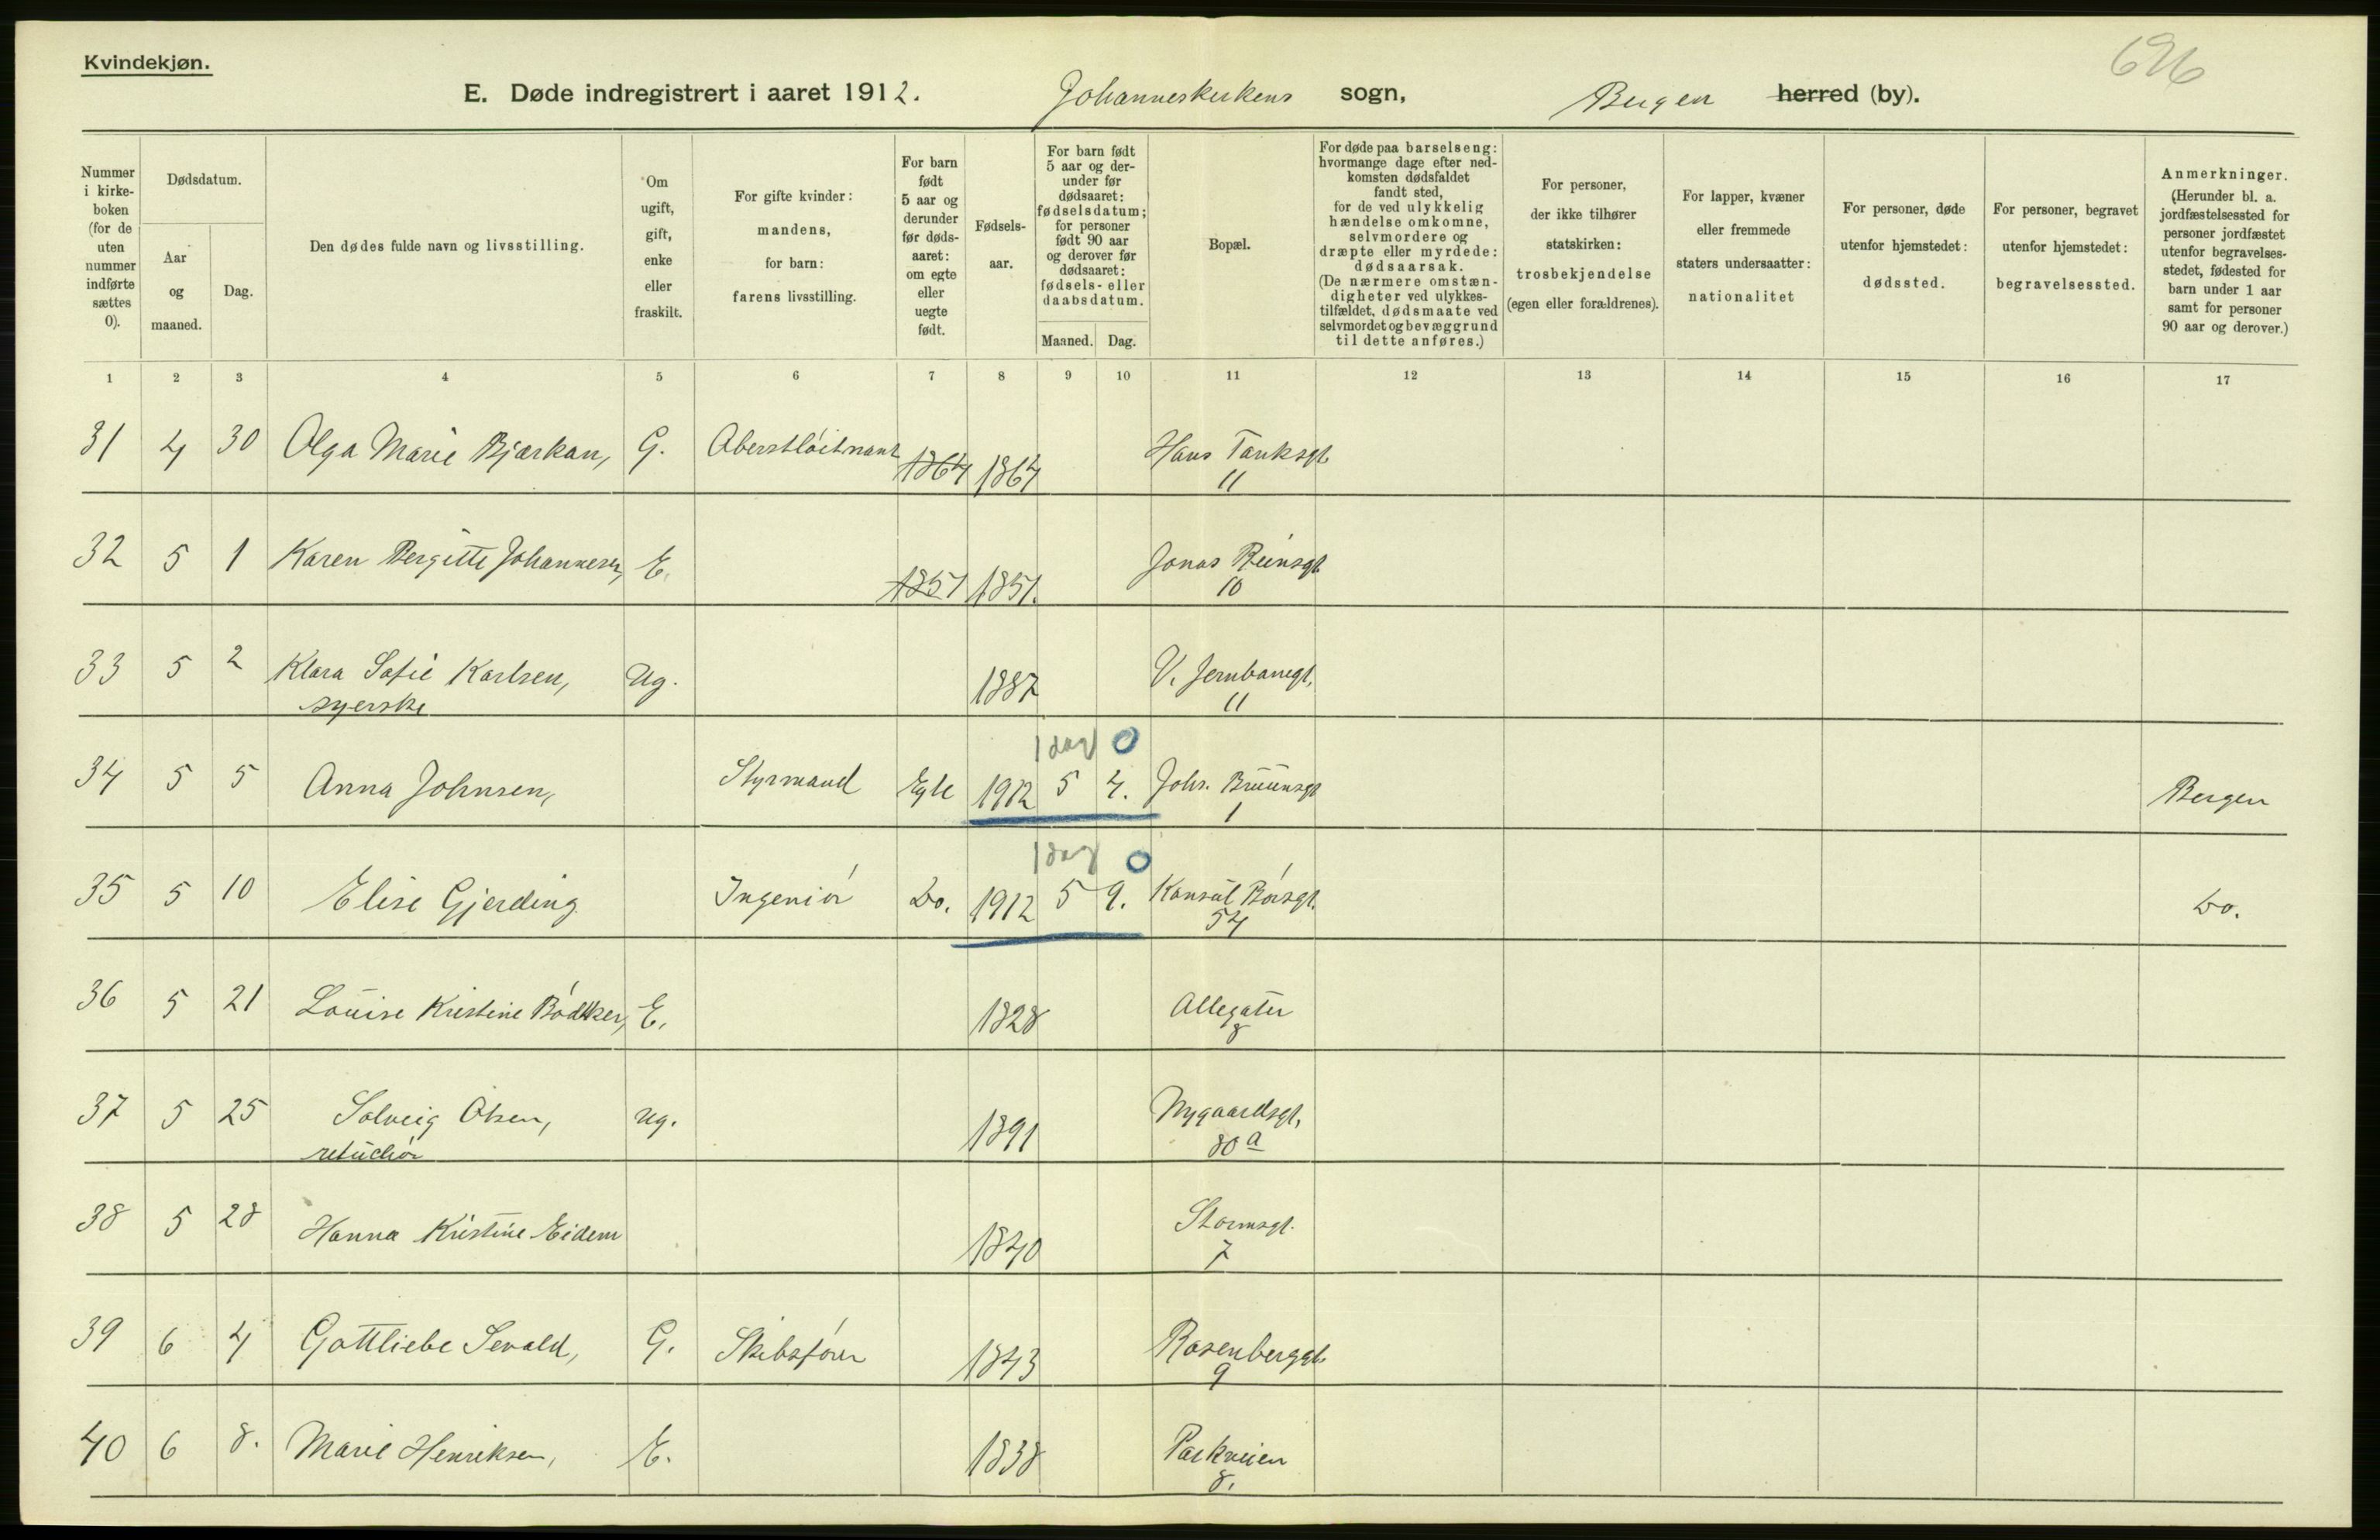 Kvindekjøn.
696
E. Døde indregistrert i aaret 1912. Johanneskirkens sogn, Bergen herred (by).
Nummer i kirkeboken (for de uten nummer indførte sættes 0).
Dødsdatum.
Aar og maaned.
Dag.
Den dødes fulde navn og livsstilling.
Om ugift, gift, enke eller fraskilt.
For gifte kvinder: mandens, for barn: farens livsstilling.
For barn født 5 aar og derunder før dødsaaret: om egte eller uegte født.
Fødselsaar.
For barn født 5 aar og derunder før dødsaaret: fødselsdatum; for personer født 90 aar og derover før dødsaaret: fødsels- eller daabsdatum.
Maaned. Dag.
Bopæl.
For døde paa barselseng: hvormange dage efter nedkomsten dødsfaldet fandt sted, for de ved ulykkelig hændelse omkomne, selvmordere og dræpte eller myrdede: dødsaarsak. (De nærmere omstændigheter ved ulykkestilfældet, dødsmaate ved selvmordet og bevæggrund til dette anføres.)
For personer, der ikke tilhører statskirken: trosbekjendelse (egen eller forældrenes).
For lapper, kvæner eller fremmede staters undersaatter: nationalitet
For personer, døde utenfor hjemstedet: dødssted.
For personer, begravet utenfor hjemstedet: begravelsessted.
Anmerkninger. (Herunder bl. a. jordfæstelsessted for personer jordfæstet utenfor begravelsesstedet, fødested for barn under 1 aar samt for personer 90 aar og derover.)
1 2 3 4 5 6 7 8 9 10 11 12 13 14 15 16 17
31 4 30 Olga Marie Bjarkan, G. Oberstløitnant 1864 1864 Hans Tanksgt. 11
32 5 1 Karen Bergitte Johannesen, E. 1851 1851. Jonas Reinsgt. 10
33 5 2 Klara Sofie Karlsen, Ug. 1887 V. Jernbanegt. 11
syerske
1 dag 0
34 5 5 Anna Johnsen, Styrmand Egte 1912 5 4. Johs. Bruunsgt. 1 Bergen
1 dag 0
35 5 10 Elise Gjerding Ingeniør Do. 1912 5 9. Konsul Børsgt. 54 Do.
36 5 21 Louise Kristine Bødtker, E. 1828 Allegaten 8
37 5 25 Solveig Olsen, Ug. 1891 Nygaardsgt. 80 a
retuchør
38 5 28 Hanna Kristine Eidem 1840 Stormsgt. 7
39 6 4 Gottliebe Sevald, G. Skibsfører 1843 Rosenberggt. 9
40 6 8. Marie Henriksen, E. 1838 Parkveien 8.